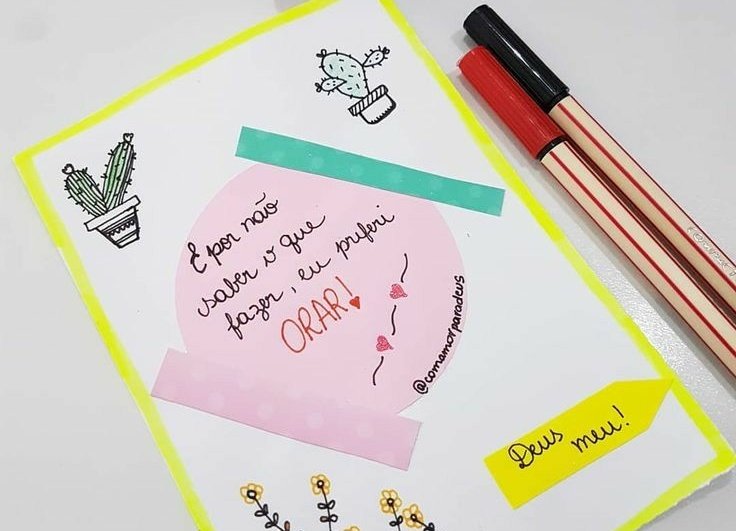 E por não
saber o que
fazer, eu preferi
ORAR!
@comamorparadeus
Deus
meu!